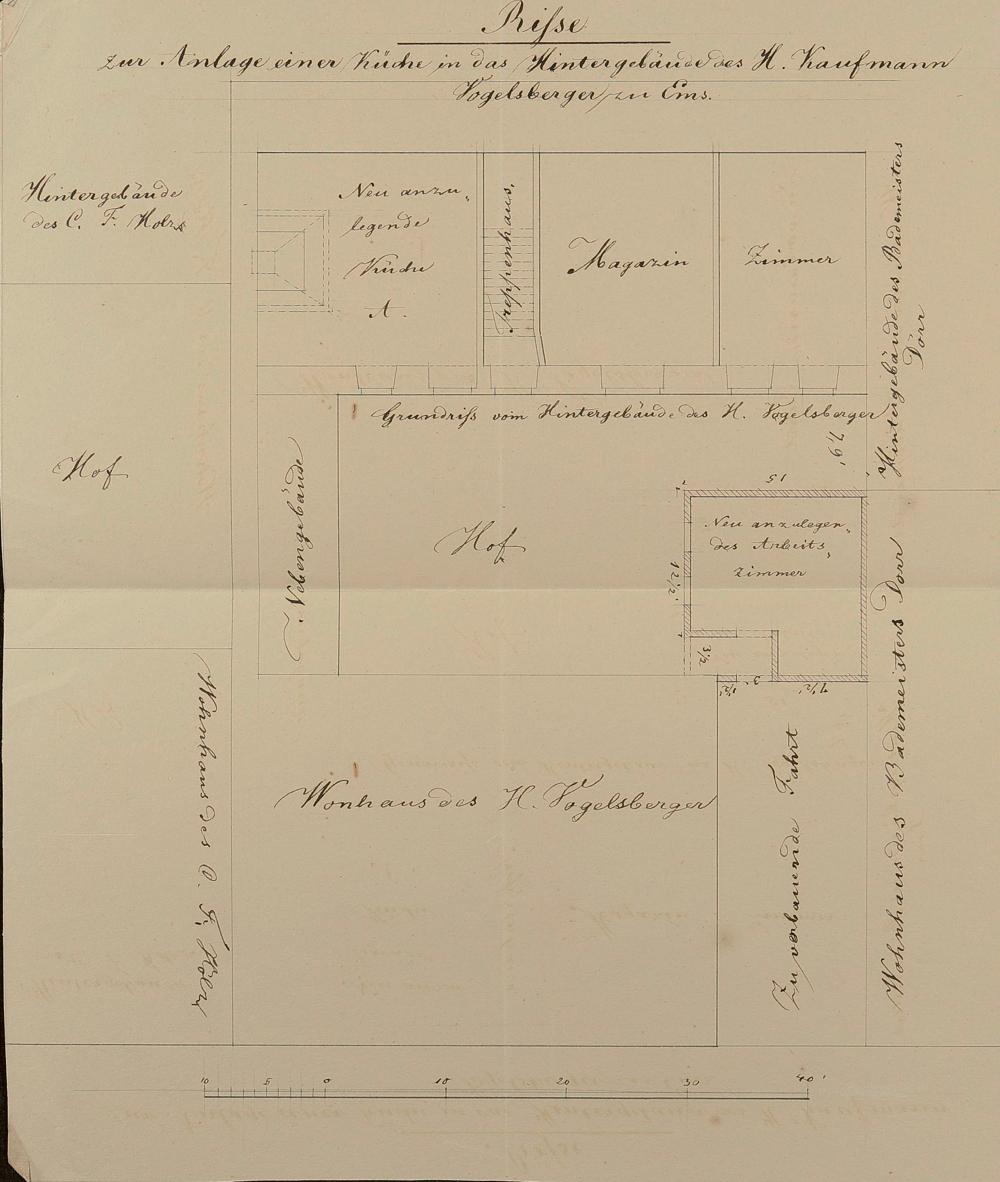 Risse
zur Anlage einer Küche in das Hintergebäude des H. Kaufmann
Vogelsberger zu Ems.
Hintergebäude
des C. F.
Neu anzu„
legende
Küche
A.
Treppenhaus.
Magazin
Zimmer
Hintergebäude des Bademeisters
Dörr
Grundriß vom Hintergebäude des H. Vogelsberger
7,9'
Hof
Nebengebäude
Hof
15
Neu anzulegen„
des Arbeits„
zimmer
12½'
3½
1½'
3'
7½'
Wohnhaus des Bademeisters Dörr
Wohnhaus des C. F.
Wonhaus des H. Vogelsberger
Zu verbauende Fahrt
10 5 0 10 20 30 40'